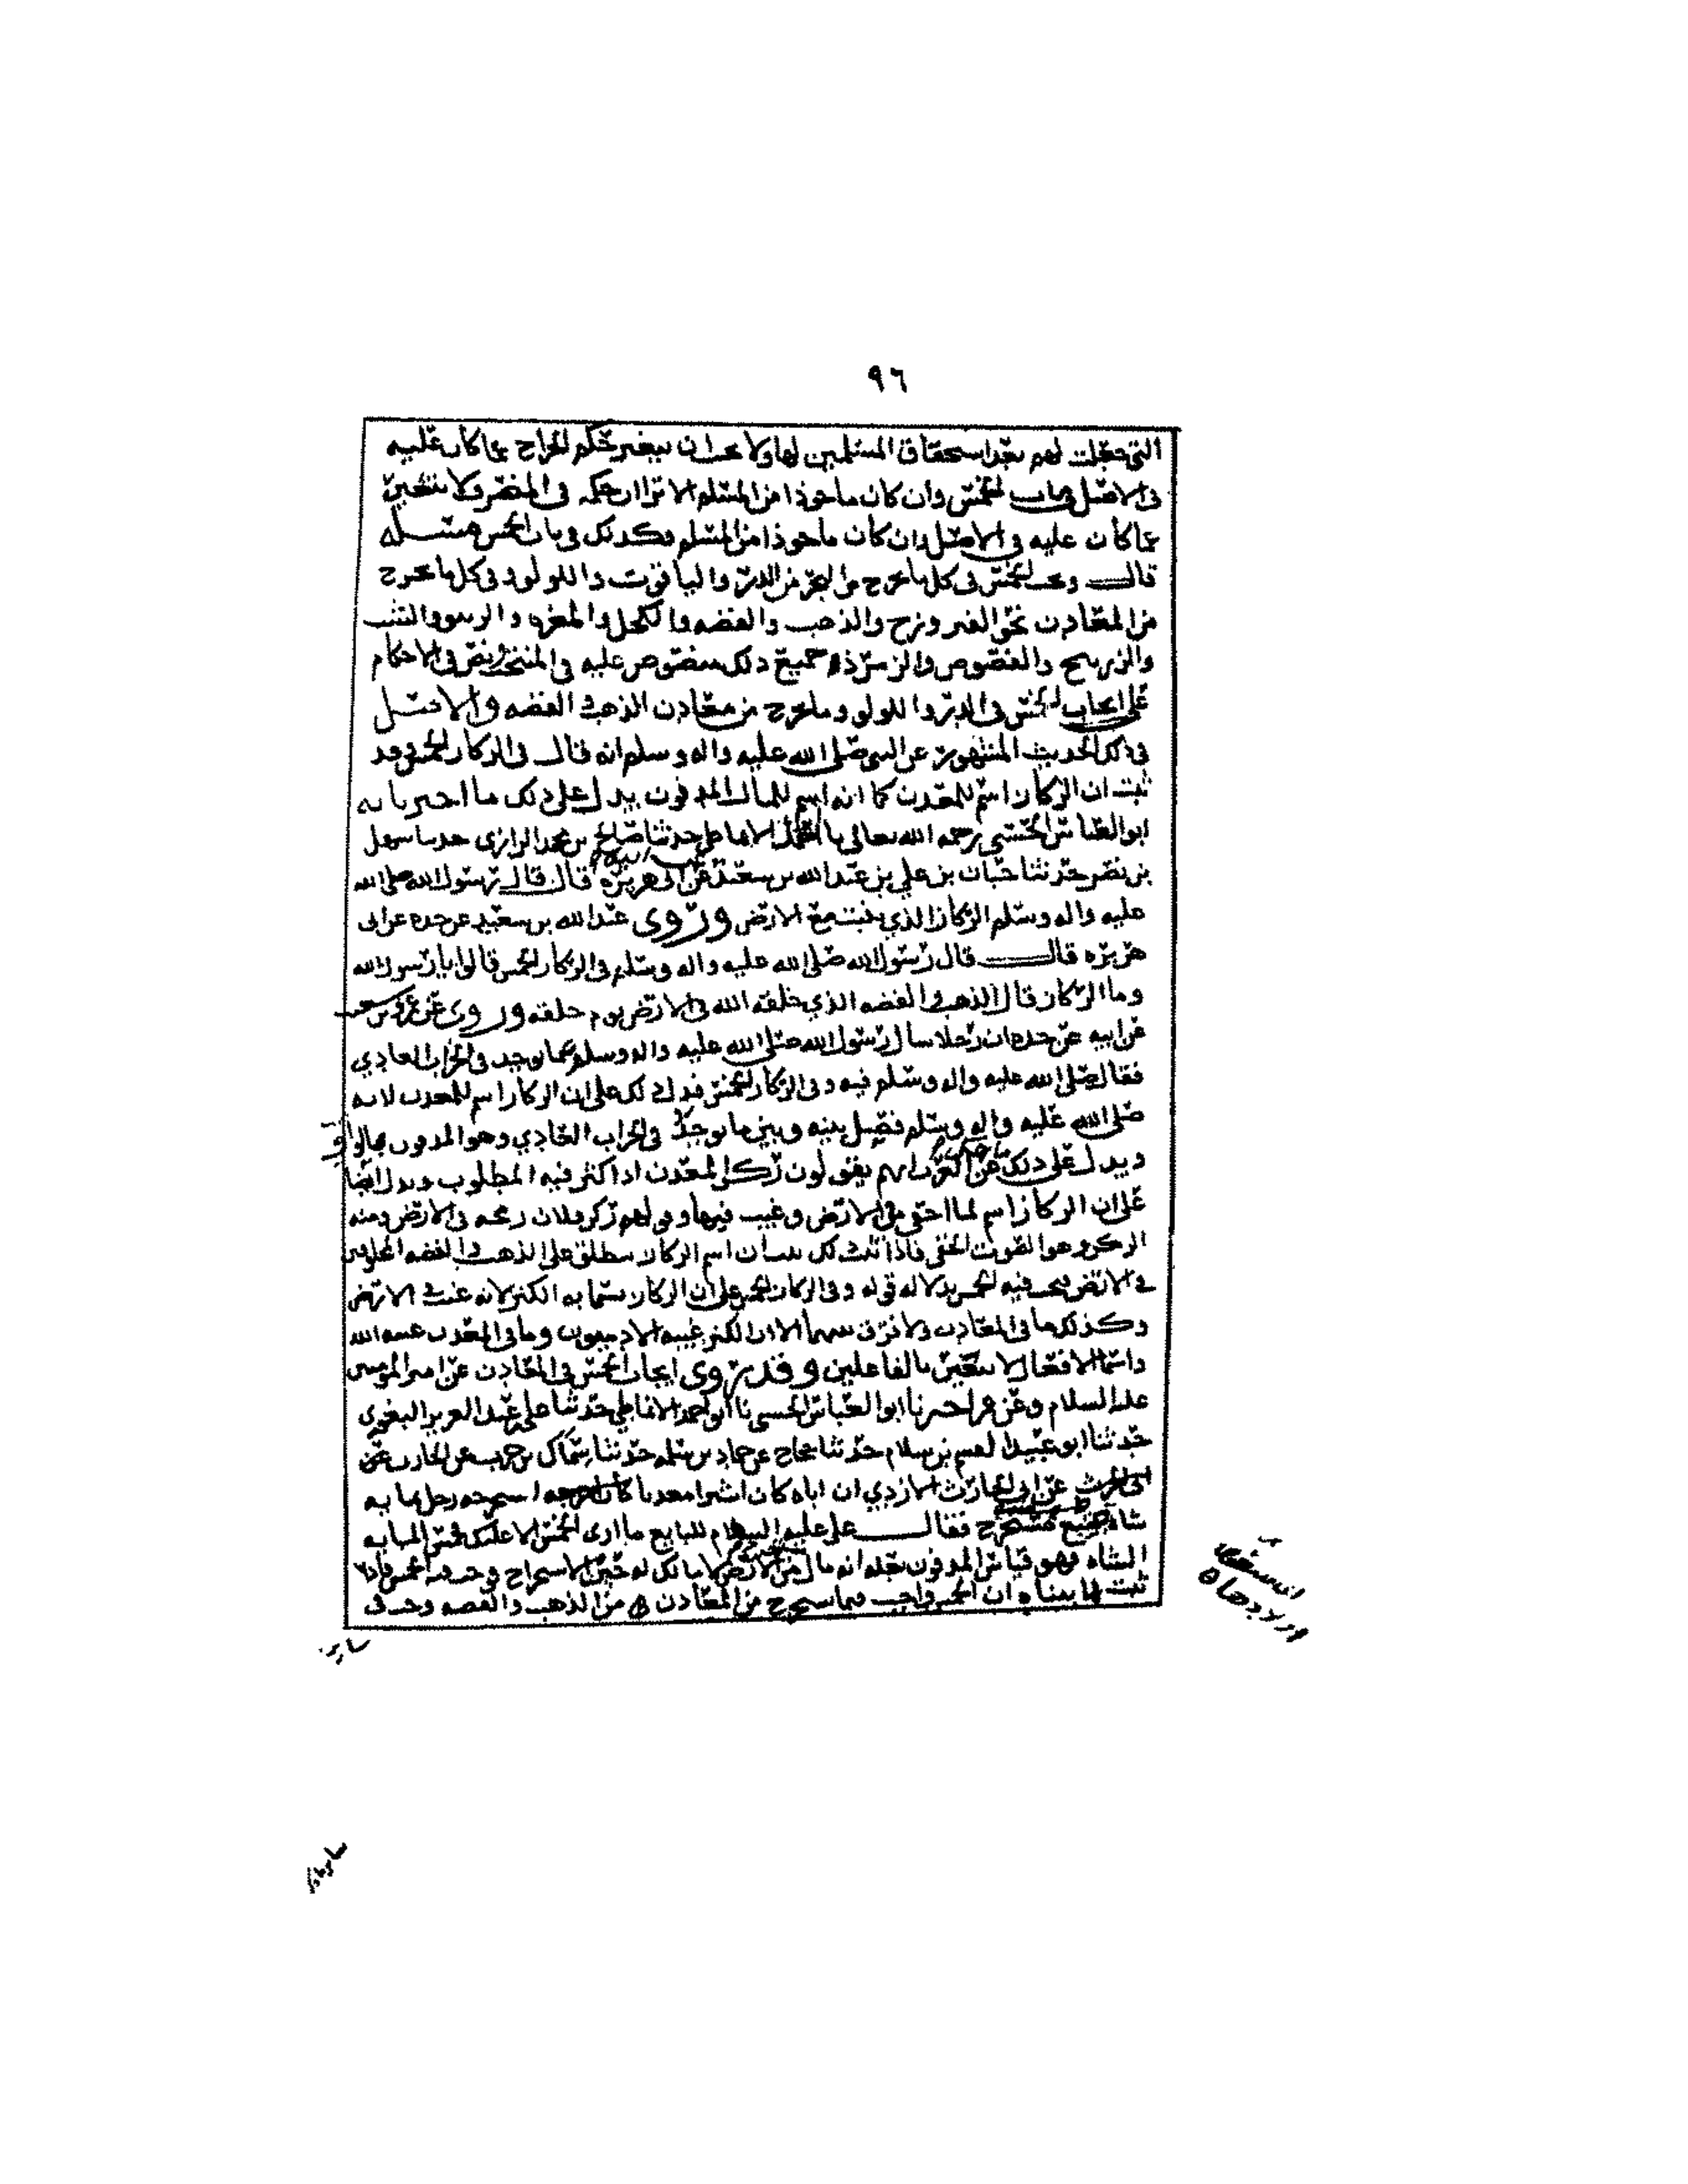 ٩٦
التي جعلت لهم بعد استحقاق المسلمين لها ولا يجب ان يتغير حكم الخراج عما كان عليه
في الاصل في باب الخمس وان كان ماخوذا من المسلم الا ترا ان حكمه في المصر ولا يتغير
عما كان عليه في الاصل وان كان ماخوذا من المسلم وكذلك في باب الخمس مسئلة
قال ويجب الخمس في كل ما خرج من البحر من الدر والياقوت واللولو وفي كل ما يخرج
من المعادن نحو الفيروزج والذهب والفضه والكحل والمغره و والشب
والزرنيخ والفصوص والزمرذ جميع ذلك منصوص عليه في المنتخب ونص في الاحكام
على ايجاب الخمس في الدر واللولو وما خرج من معادن الذهب والفضه والاصل
في ذلك الحديث المشهور عن النبي صلى الله عليه واله وسلم انه قال في الركاز الخمس وقد
ثبت ان الركاز اسم للمعدن كما انه اسم للمال المدفون يدل على ذلك ما اخبرنا به
ابو العباس الحسني رحمه الله تعالى الانماطي حدثنا صالح بن محمد الرازي حدثنا سهل
بن نصر حدثنا حبان بن علي بن عبد الله بن سعيد عن ابي هريره قال قال رسول الله صلى الله
عليه واله وسلم الركاز الذي ينبت مع الارض وروى عبد الله بن سعيد عن جده عن ابي
هريره قال قال رسول الله صلى الله عليه واله وسلم في الركاز الخمس قالوا يا رسول الله
وما الركاز قال الذهب والفضه الذي خلقه الله في الارض يوم خلقه وروى عن عمرو بن شعيب
عن ابيه عن جده ان رجلا سال رسول الله صلى الله عليه واله وسلم عما يوجد في الخراب العادي
فقال صلى الله عليه واله وسلم فيه وفي الركاز الخمس فدل ذلك على ان الركاز اسم للمعدن لانه
صلى الله عليه واله وسلم فصل بينه وبين ما يوجد في الخراب العادي وهو المدفون
ويدل على ذلك عن العرب انهم يقولون ركز المعدن اذا كثر فيه المطلوب ويدل ايضا
على ان الركاز اسم لما اختفى في الارض وغيب فيها وقولهم ركز فلان رمحه في الارض ومنه
الركز وهو الصوت الخفي فاذا ثبت ذلك بان اسم الركاز ينطلق على الذهب والفضه المخلوقين
في الارض فيجب فيه الخمس بدلاله قوله وفي الركاز الخمس على ان الركاز سما به الكنز لانه غيب في الارض
وكذلك ما في المعادن ولا فرق بينهما الا ان الكنز غيبه الادميون وما في المعدن غيبه الله
واسما الافعال لا تتغير بالفاعلين وقد روى ايجاب الخمس في المعادن عن امير المومنين
عليه السلام وعن عمر اخبرنا ابو العباس الحسني نا ابو احمد الانماطي حدثنا علي بن عبد العزيز البغوي
حدثنا ابو عبيد القسم بن سلام حدثنا حجاج عن حماد بن سلمه حدثنا سماك بن حرب عن الحارث عن
ابي الحرث عن ابي الحارث الازدي ان اباه كان اشترا معدنا كان استخرجه رجل بمايه
شاه فقال علي عليه السلام للبايع ما ارى الخمس الا عليك فخمس المايه
الشاه فهو قياس المدفون بعله انه مال من الارض لا مالك له حين الاستخراج فوجب فيه الخمس فاذا
ثبت بما بيناه ان الخمس واجب فيما استخرج من المعادن من الذهب والفضه وجب في
ساير